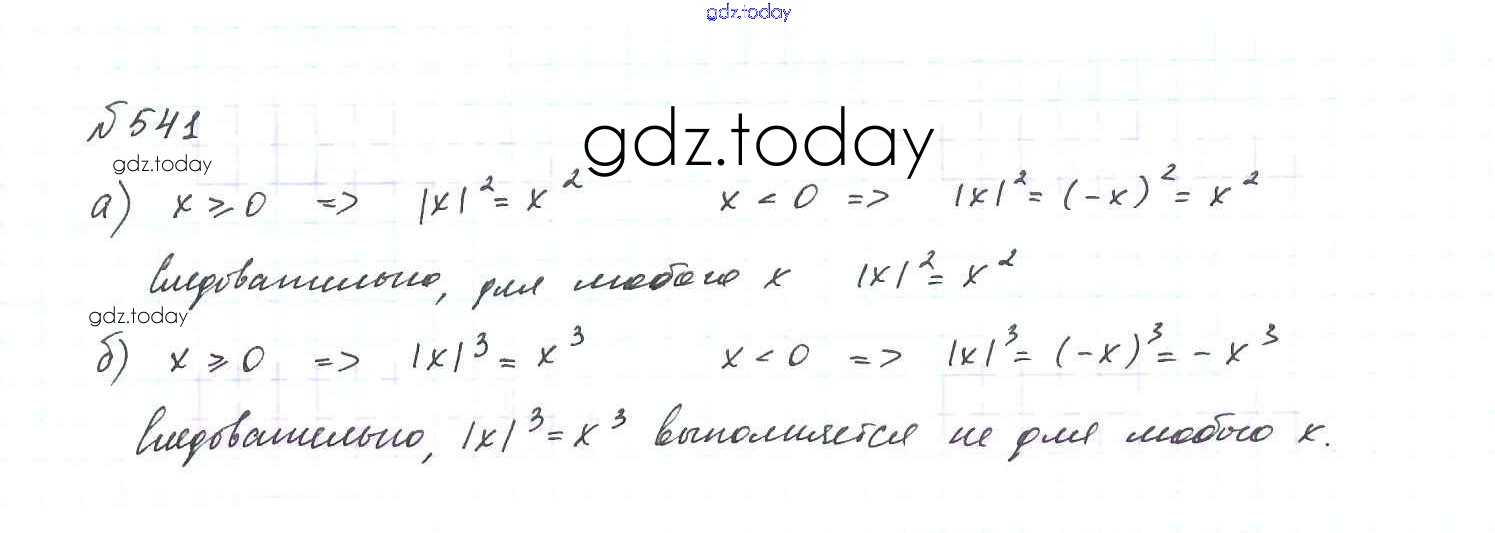 gdz.today
№ 541
gdz.today
gdz.today
а) x ⩾ 0 => |x|² = x² x < 0 => |x|² = (-x)² = x²
Следовательно, для любого x |x|² = x²
gdz.today
б) x ⩾ 0 => |x|³ = x³ x < 0 => |x|³ = (-x)³ = - x³
Следовательно, |x|³ = x³ выполняется не для любого x.